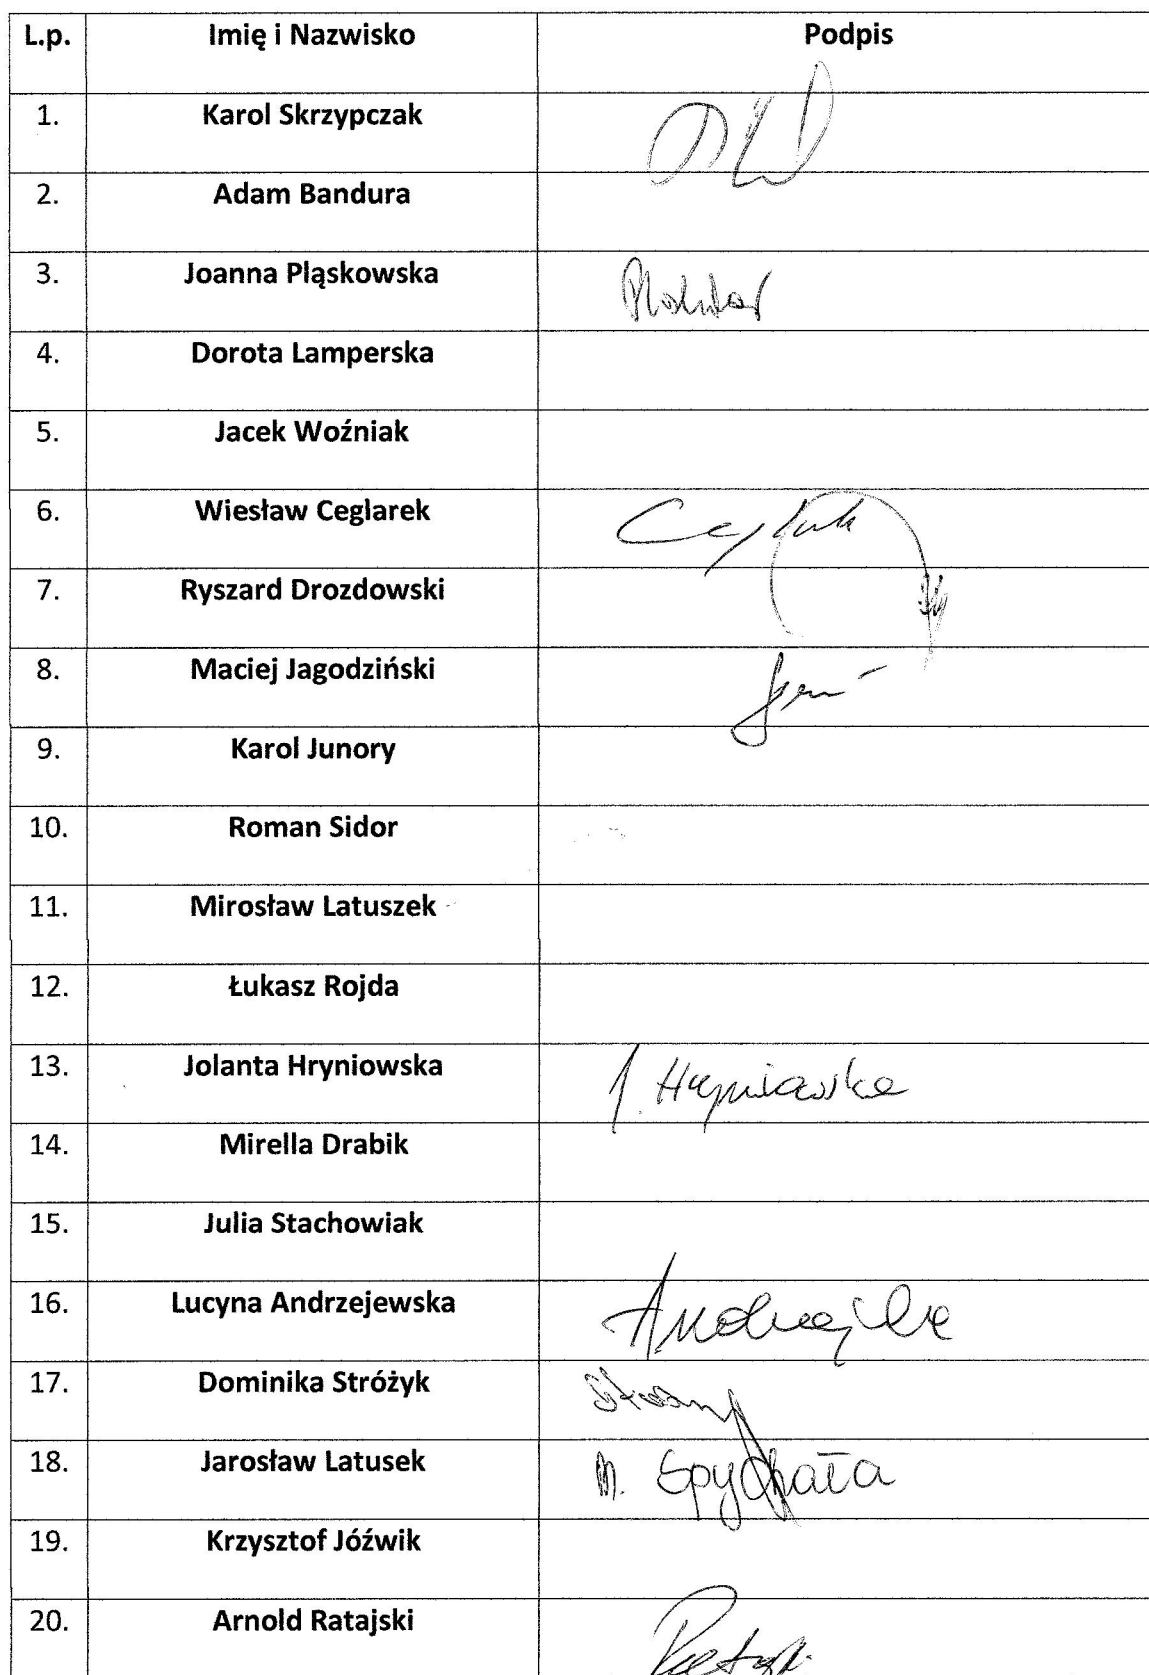 L.p. Imię i Nazwisko Podpis
1. Karol Skrzypczak
2. Adam Bandura
3. Joanna Pląskowska
4. Dorota Lamperska
5. Jacek Woźniak
6. Wiesław Ceglarek
7. Ryszard Drozdowski
8. Maciej Jagodziński
9. Karol Junory
10. Roman Sidor
11. Mirosław Latuszek
12. Łukasz Rojda
13. Jolanta Hryniowska J. Hryniowska
14. Mirella Drabik
15. Julia Stachowiak
16. Lucyna Andrzejewska
17. Dominika Stróżyk
18. Jarosław Latusek M. Spychała
19. Krzysztof Jóźwik
20. Arnold Ratajski